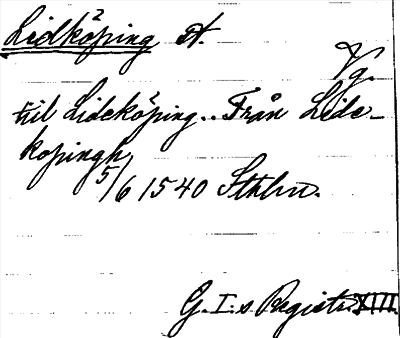 Lidköping St.
Vg.
till Lideköping.. Från Lide-
köpingh
5/6 1540 Sthlm.
G. I:s Registr. XIII.